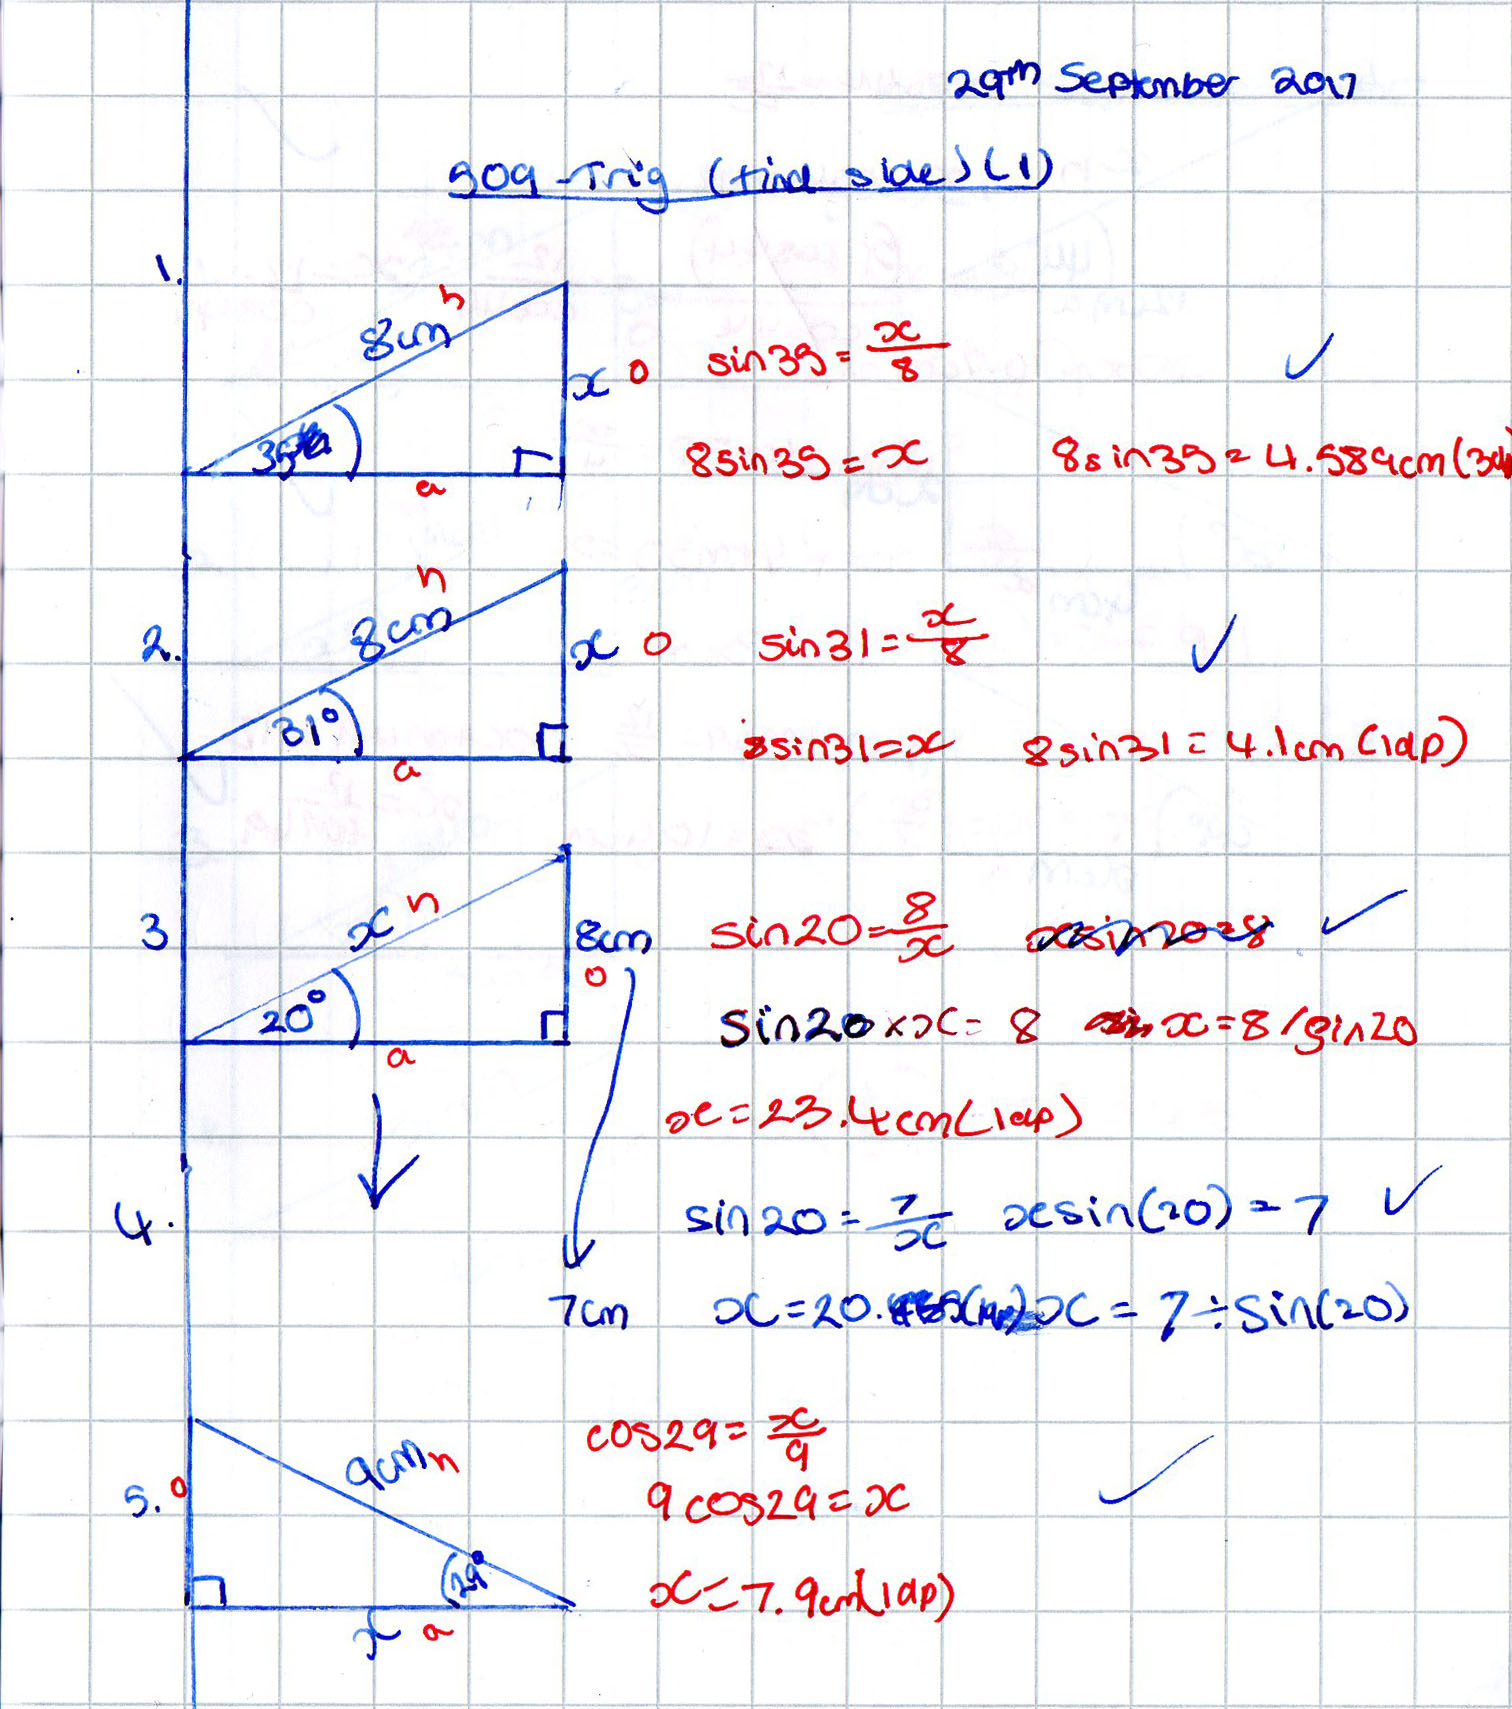 29th September 2017
509 - Trig (find side) (1)
1.
8cm h
35°
x o
a
sin35 = x/8
8sin35 = x 8sin35 = 4.589cm (3dp)
2.
8cm h
31°
x o
a
sin31 = x/8
8sin31 = x 8sin31 = 4.1cm (1dp)
3
x h
20°
8cm
o
a
sin20 = 8/x xsin20=8
sin20 × x = 8 x = 8/sin20
x = 23.4cm (1dp)
4.
7cm
sin20 = 7/x xsin(20) = 7
x = 20. x = 7 ÷ sin(20)
5.
o
9cm h
29°
x a
cos29 = x/9
9cos29 = x
x = 7.9cm (1dp)